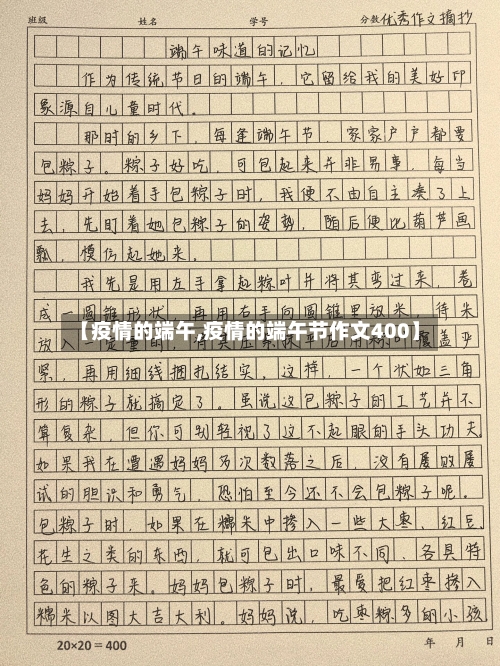 班级 姓名 学号 分数 优秀作文摘抄
端午味道的记忆
作为传统节日的端午，它留给我的美好印
象源自儿童时代。
那时的乡下，每逢端午节，家家户户都要
包粽子。粽子好吃，可包起来并非易事，每当
妈妈开始着手包粽子时，我便不由自主凑了上
去，先盯着她包粽子的姿势，随后便比葫芦画
瓢，模仿起她来。
我先是用左手拿起粽叶并将其弯过来，卷
成一圆锥形状，再用右手向圆锥里放米，待米
【疫情的端午,疫情的端午节作文400】
放入一定量时
覆盖严
紧，再用细线捆扎结实，这样，一个状如三角
形的粽子就搞定了。虽说这包粽子的工艺并不
算复杂，但你可别轻视了这不起眼的手头功夫。
如果我在遭遇妈妈多次数落之后，没有屡败屡
试的胆识和勇气，恐怕至今还不会包粽子呢。
包粽子时，如果在糯米中掺入一些大枣、红豆、
花生之类的东西，就可包出口味不同、各具特
色的粽子来。妈妈包粽子时，最爱把红枣掺入
糯米以图大吉大利。妈妈说，吃枣粽多的小孩
20×20＝400 年 月 日